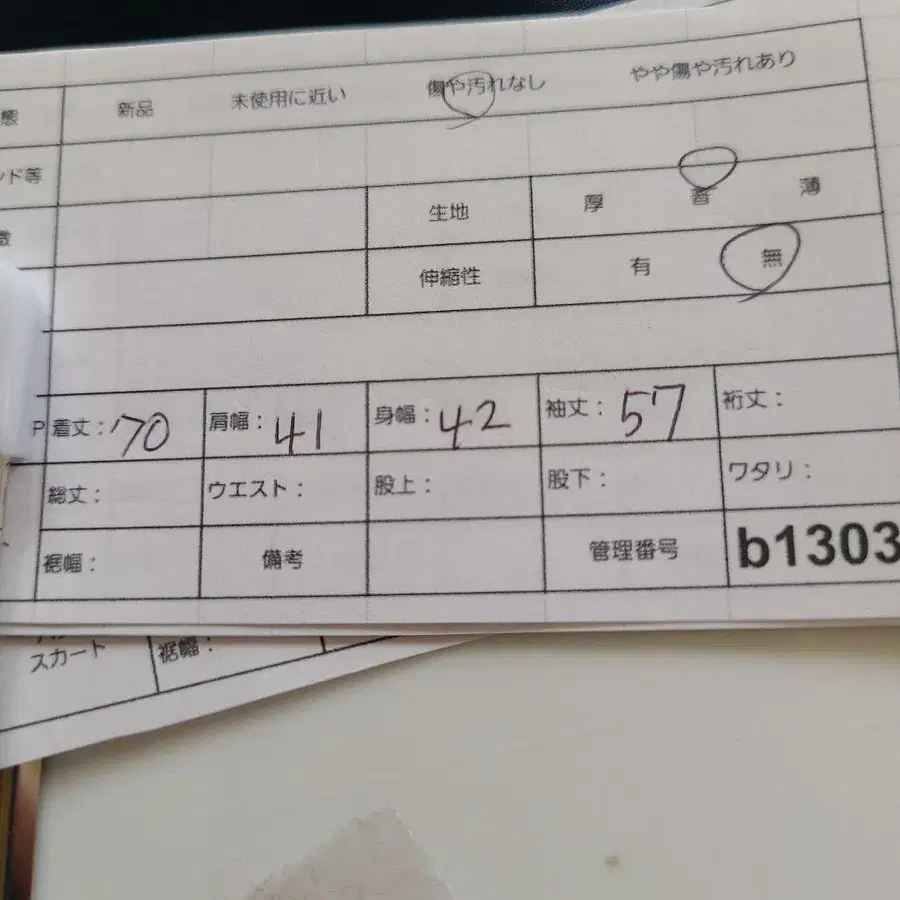 態 新品 未使用に近い 傷や汚れなし やや傷や汚れあり
ンド等
徴 生地 厚 普 薄
伸縮性 有 無
P 着丈：70 肩幅：41 身幅：42 袖丈：57 裄丈：
総丈： ウエスト： 股上： 股下： ワタリ：
裾幅： 備考 管理番号 b1303
スカート 裾幅：